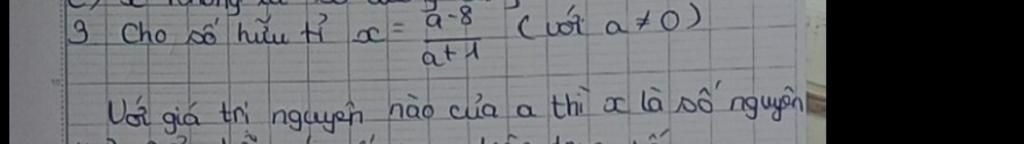 9 Cho số hữu tỉ x = a-8 / a+1 (với a ≠ 0)
Với giá trị nguyên nào của a thì x là số nguyên